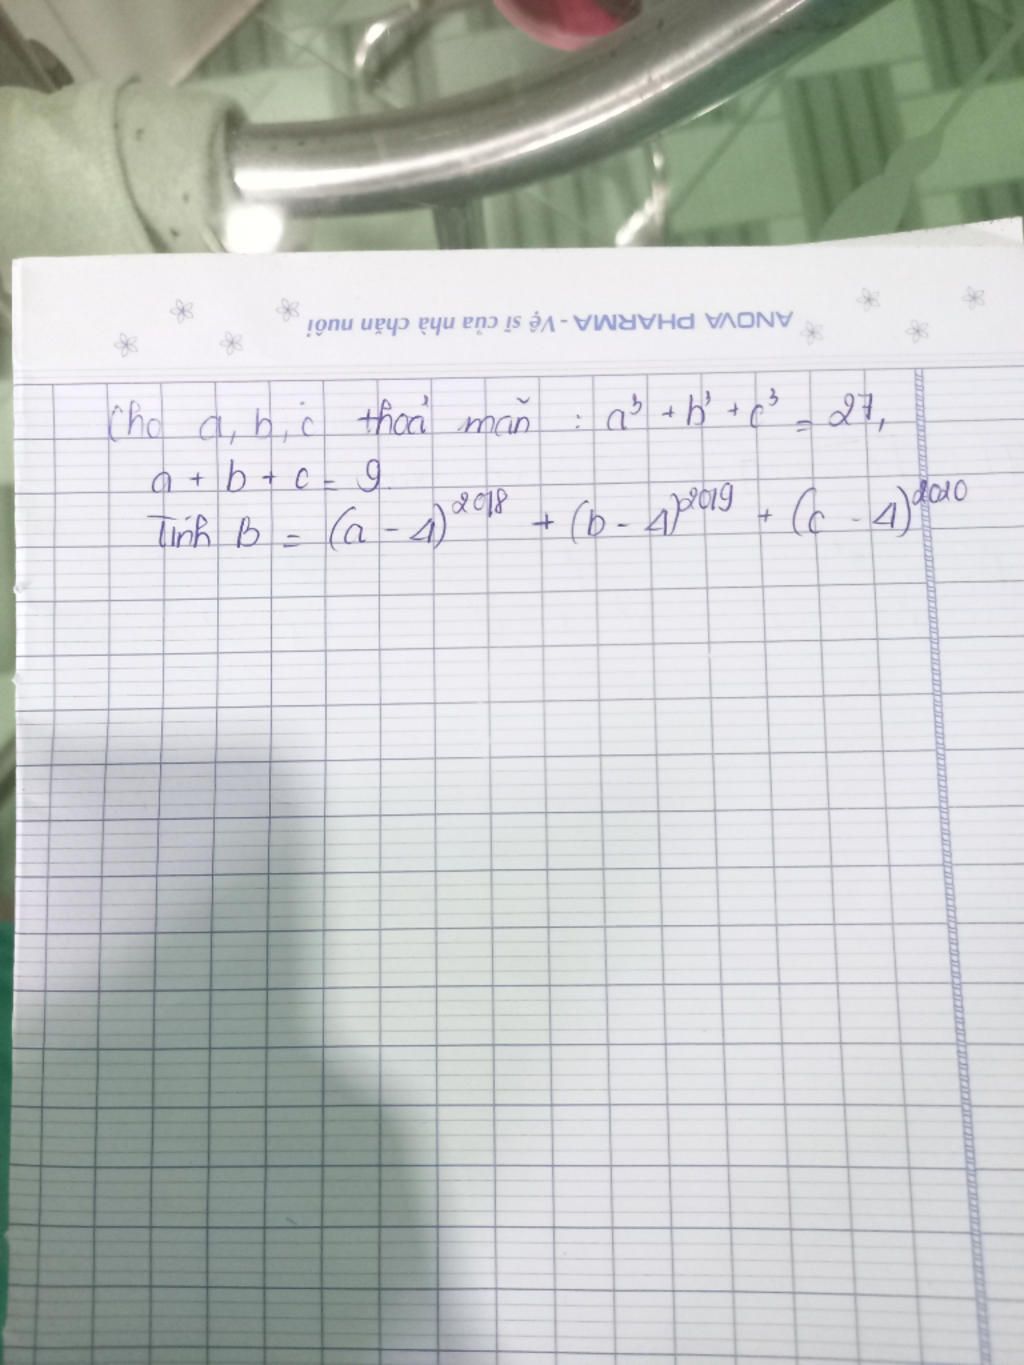 ANOVA PHARMA - Vệ sĩ của nhà chăn nuôi
Cho a, b, c thoả mãn : a³ + b³ + c³ = 27,
a + b + c = 9
Tính B = (a - 4)²⁰¹⁸ + (b - 4)²⁰¹⁹ + (c - 4)²⁰²⁰